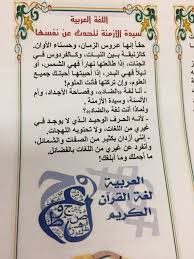 اللغة العربية
سيدة الأزمنة تتحدث عن نفسها
حقا إنها عروس الزمان، وحسناء الأوان،
كالزنبقة بين النبات، وكالفردوس في
الجنات، إذا طالعتها نهارا فهي الشمس، أو
ليلا فهي البدر، إذا أحببتها أحبتك جميع
العلوم، وإن تركتها فأنت الملوم.
- أنا لغة «الضاد»، وفصاحة الأجداد، وأم
الألسنة، وسيدة الأزمنة.
ولماذا أنت لغة «الضاد»؟
- لأنه الحرف الوحيد الذي لا يوجد في
غيري من اللغات، ولا تحتويه اللهجات.
- إنني أزدان بكثير من الصفات والشمائل،
وأنفرد عن غيري من اللغات بالفضائل.
ما أجملك وما أبلغك!
العربية
لغة القرآن
الكريم